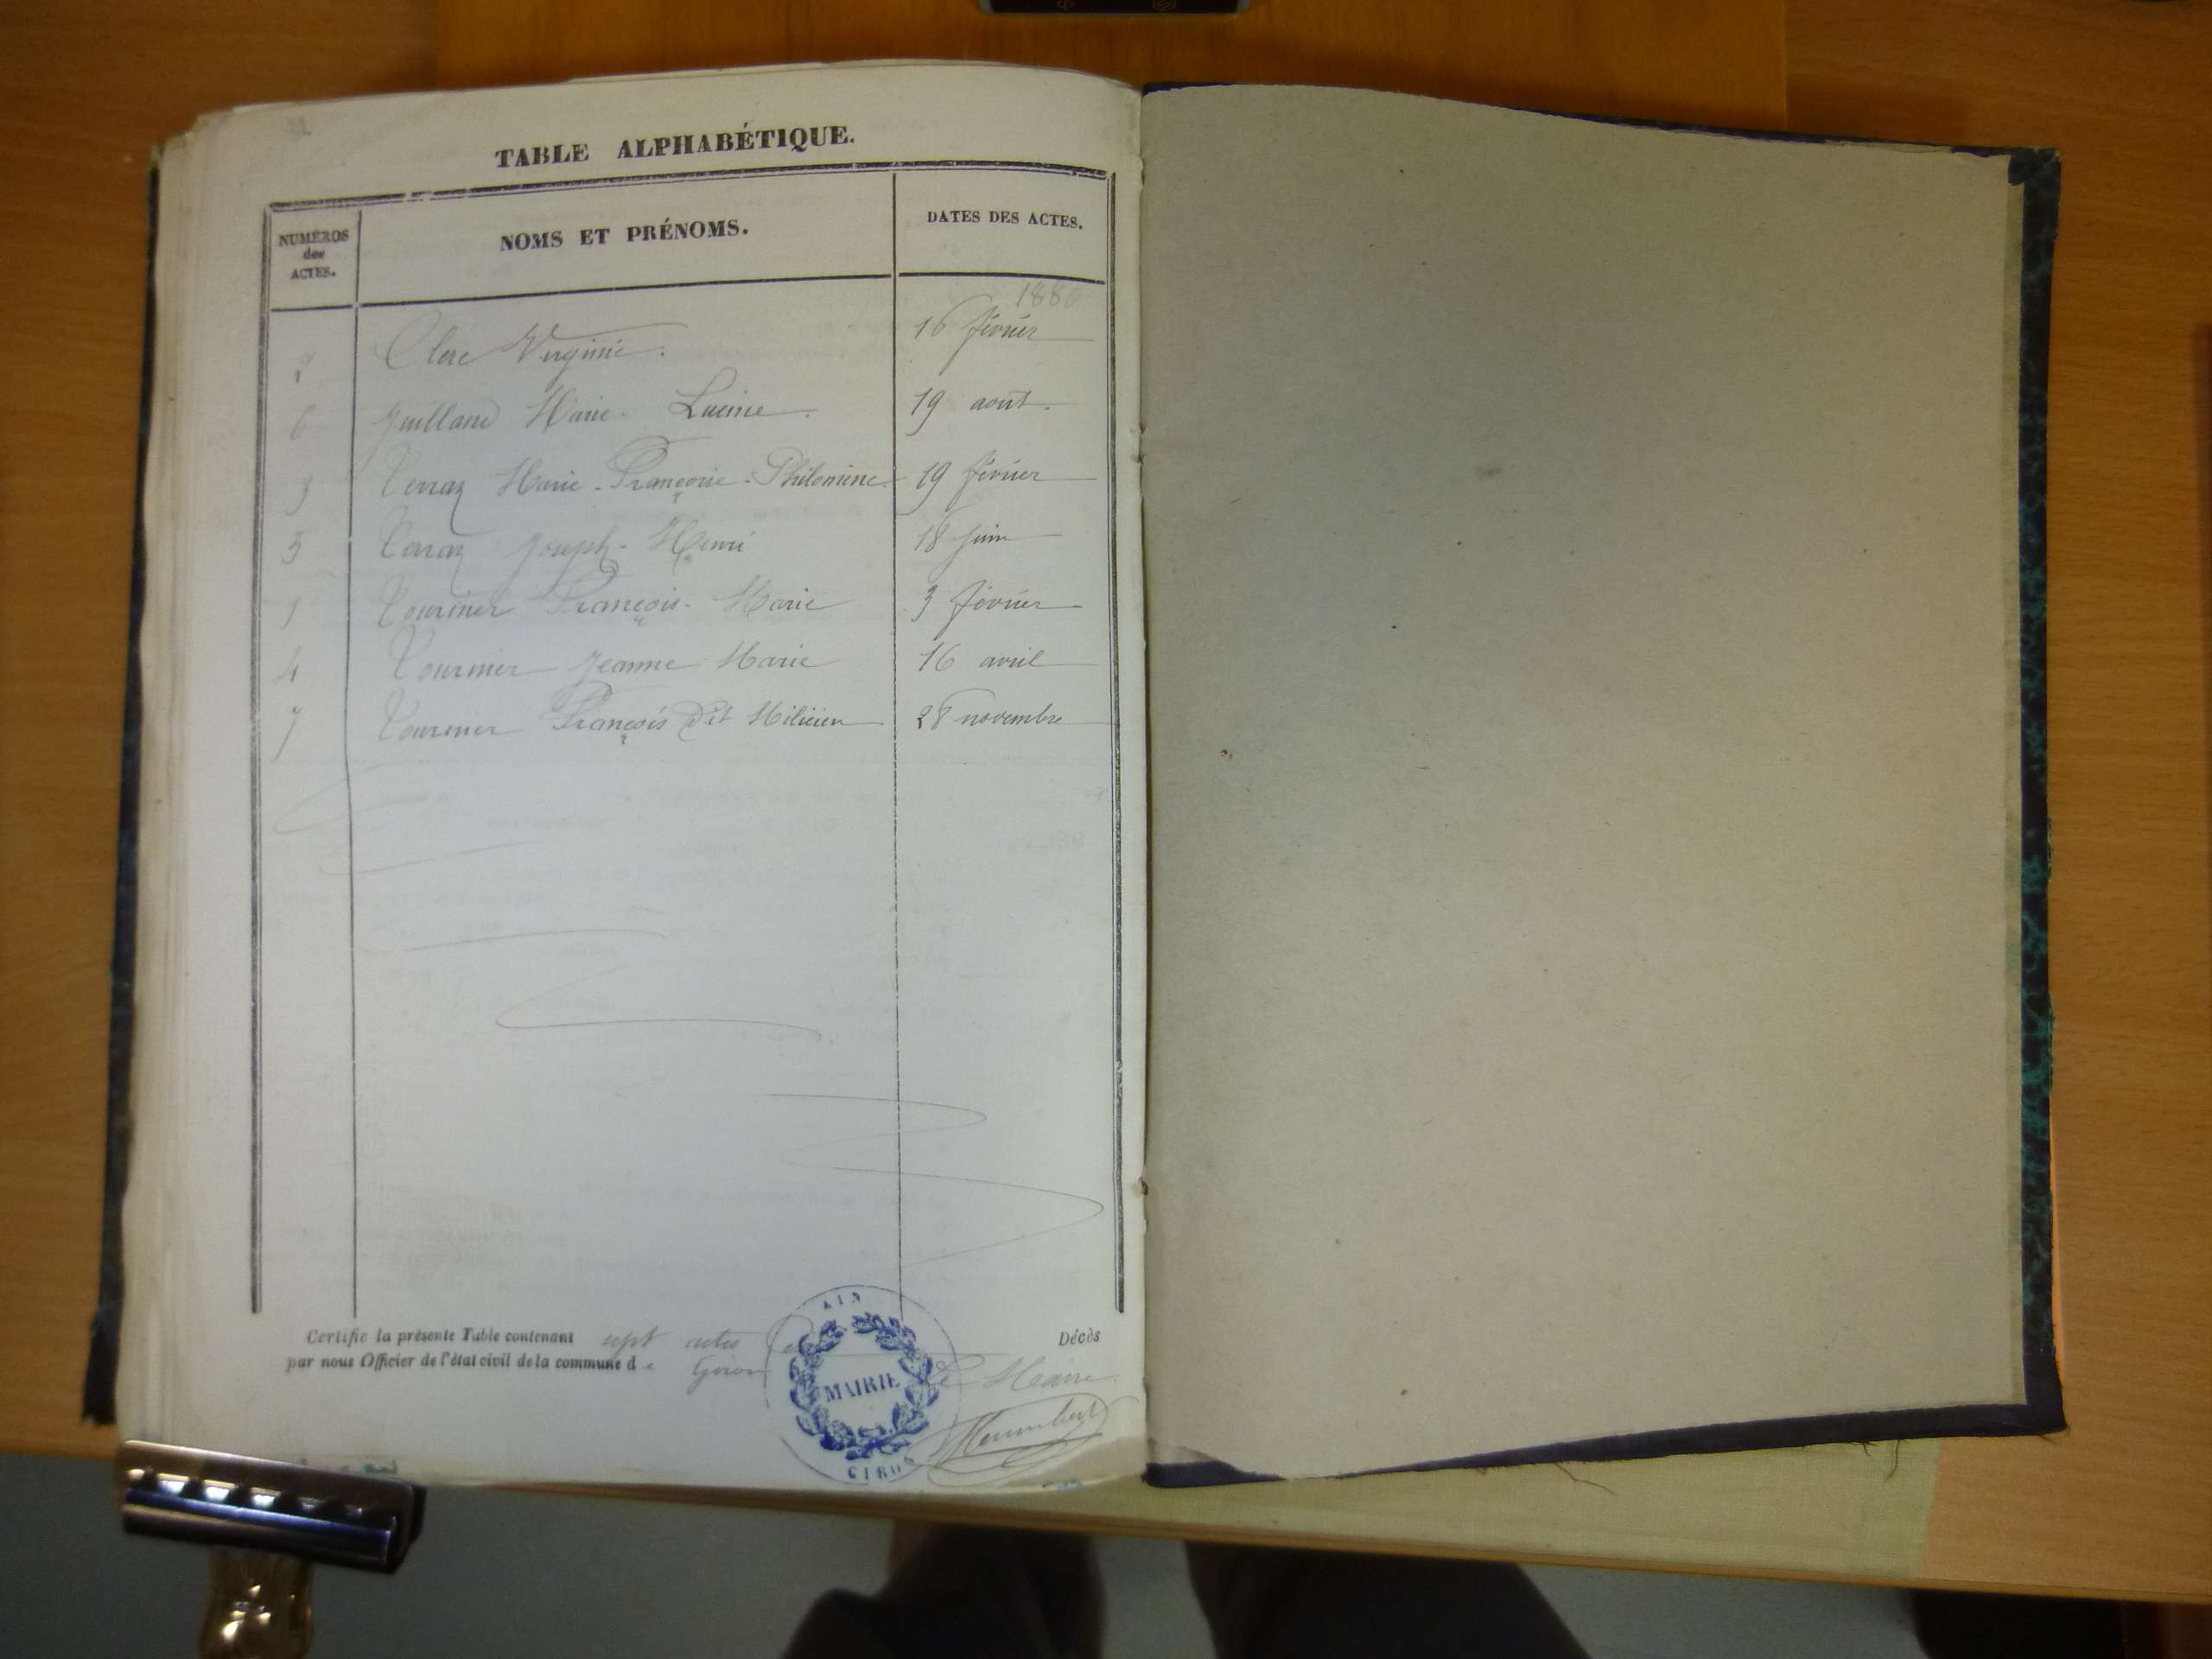 TABLE ALPHABÉTIQUE.
NUMÉROS
des
ACTES.
NOMS ET PRÉNOMS.
DATES DES ACTES.
1886
2 Clerc Virginie. 16 février
6 Juilland Marie - Lucine. 19 août.
3 Verraz Marie - Françoise - Philomène 19 février
5 Verraz Joseph - Henri 18 juin
1 Tournier François - Marie 3 février
4 Tournier Jeanne Marie 16 avril
7 Tournier François dit Milicien 28 novembre
Certifie la présente Table contenant sept actes de Décès
par nous Officier de l'état civil de la commune de Giron
Le Maire.
Humbert
AIN
MAIRIE
GIRON